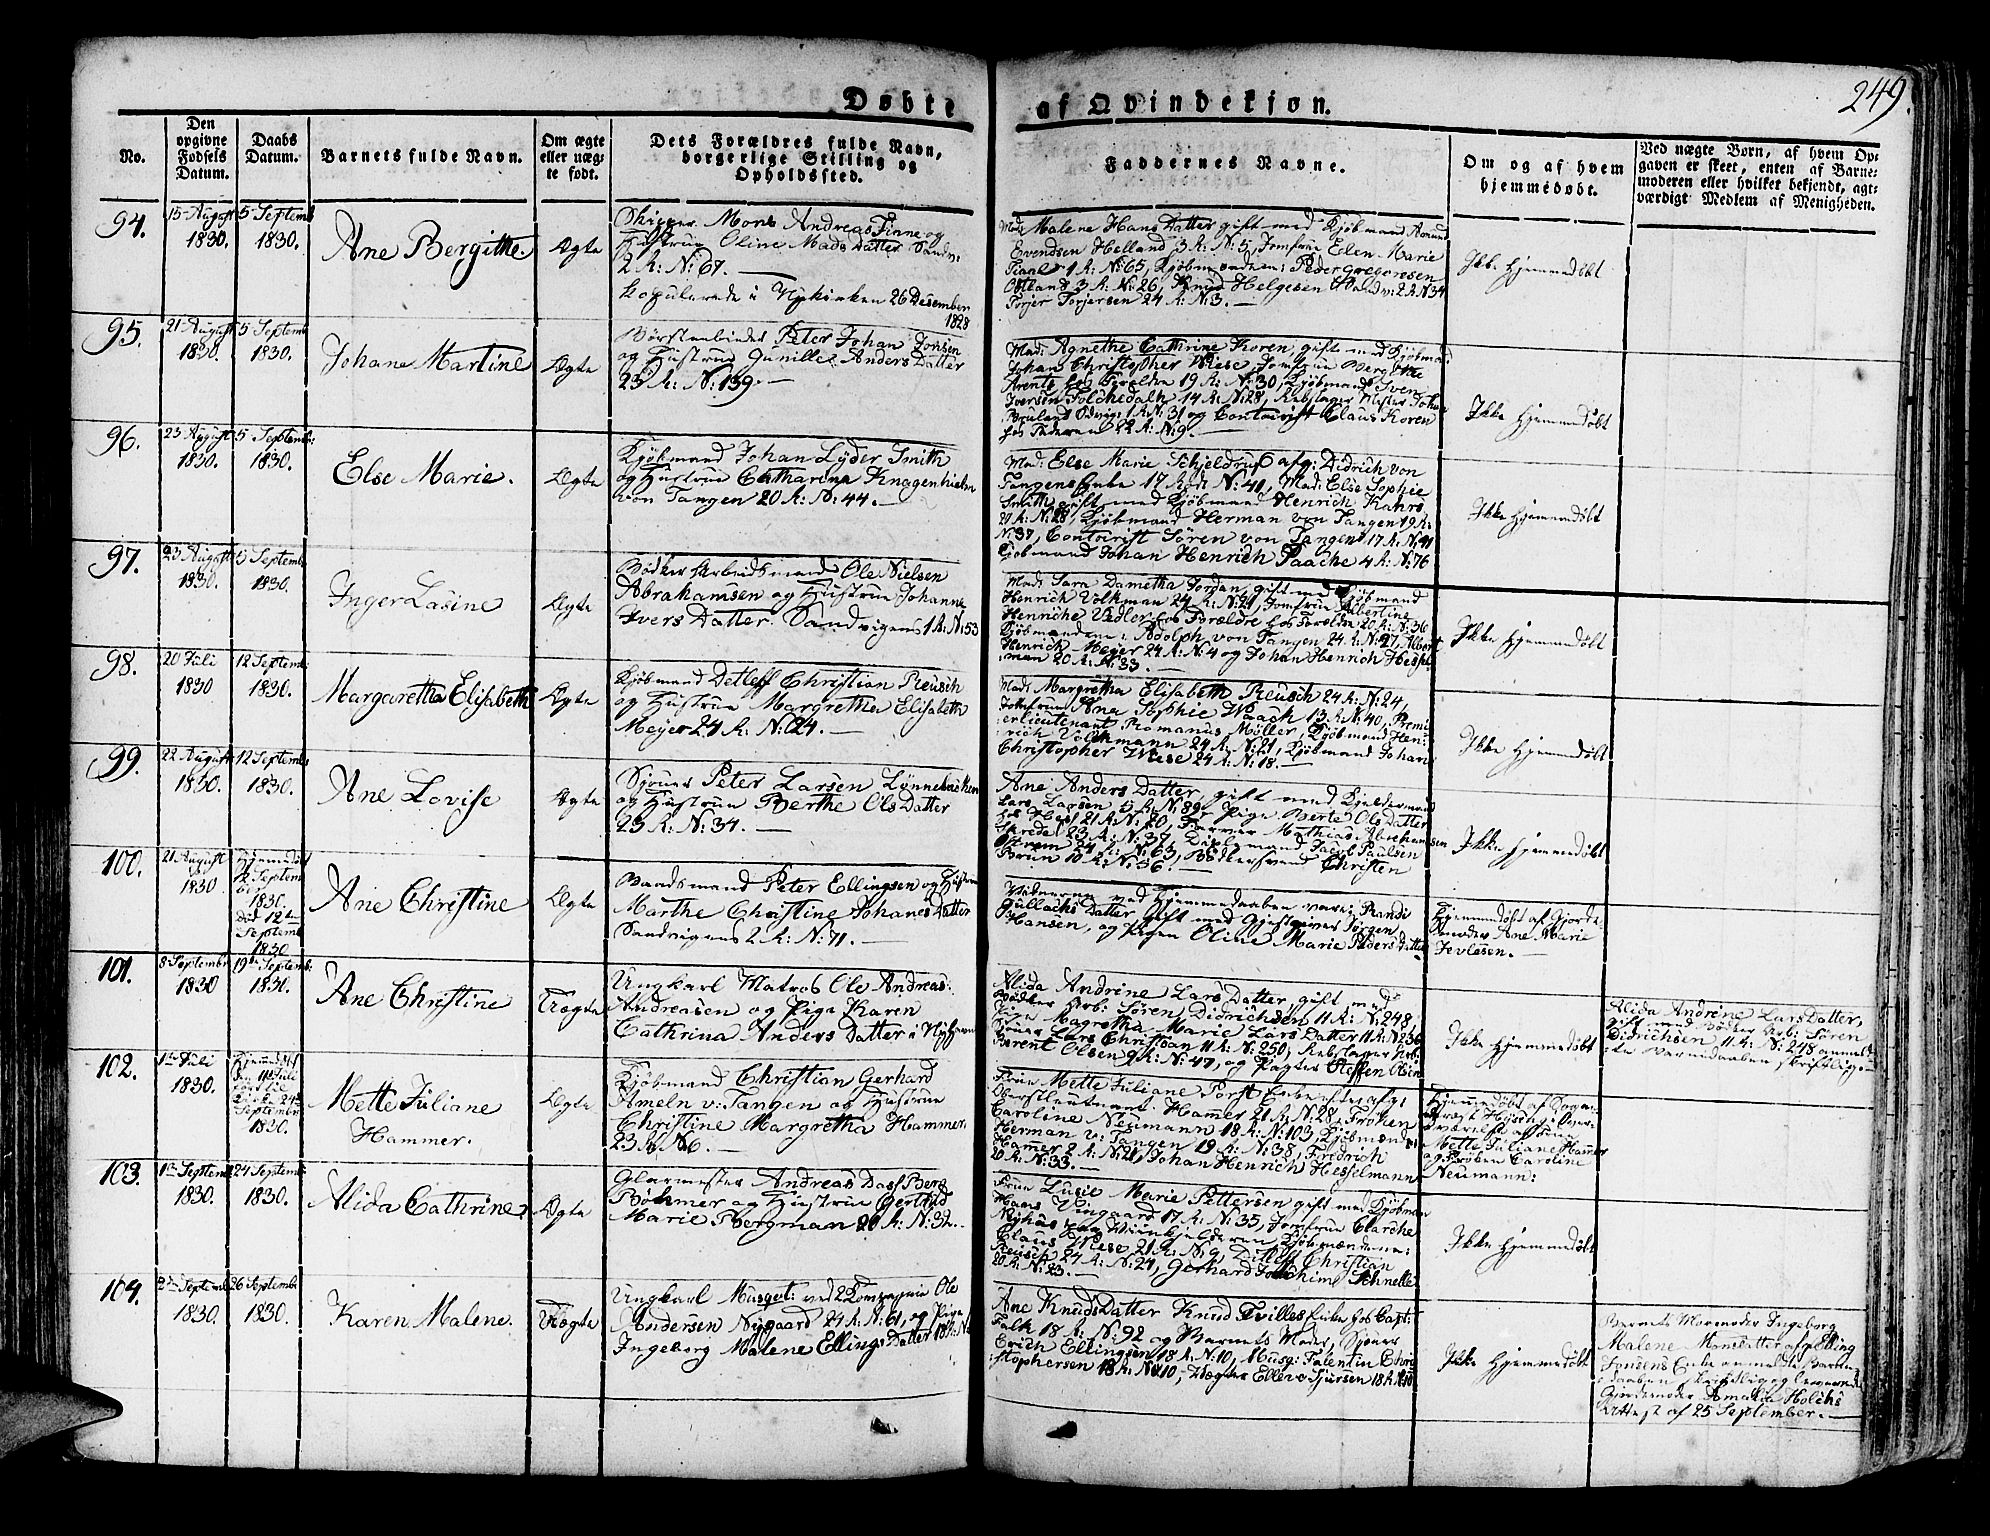 249.
Døbte af Qvindekjøn.
No.
Den opgivne Fødsels Datum.
Daabs Datum.
Barnets fulde Navn.
Om ægte eller uægte født.
Dets Forældres fulde Navn, borgerlige Stilling og Opholdssted.
Faddernes Navne.
Om og af hvem hjemmedøbt.
Ved uægte Børn, af hvem Opgaven er skeet, enten af Barnemoderen eller hvilket bekjendt, agtværdigt Medlem af Menigheden.
94.
15 August 1830.
5 Septemb 1830.
Ane Bergithe.
Ægte
Skipper Mons Andreas Finne og
Hustrue Oline Mads Datter Sandv:
2 R: N: 67. —
Kopulerede i Nykirken 26 Desember
1828
Mad: Malene Hans Datter gift med Kjøbmand
Evendsen Helland 3 R: N: 5, Jomfrue Elen Marie
1 R: N: 65, Kjøbmændene: Peder Gregoriesen
Østland 3 R: N: 26, Knud Helgesen Sandv: 2 R N 34
Torjer Torjersen 24 R: N: 3. —
Ikke Hjemmedøbt
95.
21 August 1830.
5 Septemb 1830.
Johane Martine
Ægte
Børstenbinder Peter Johan Jonsen
og Hustrue Gunille Anders Datter
23 R: N: 139. —
Mad: Agnethe Cathrine Koren, gift med Kjøbmand
Johan Christopher Wiese, Jomfrue Bergitte
Arentz hos Forældre 19 R: N: 30, Kjøbmand Sven
Iversen Folchedalh 14 R: N: 28, Rebslager Mester Johan
1 R: N: 31 og Contoirist Claus Koren
hos Faderen 22 R: N: 9. —
Ikke Hjemmedøbt
96.
23 August 1830.
5 Septemb: 1830.
Else Marie.
Ægte
Kjøbmand Johan Lyder Smith
og Hustrue Catharina Knagenhielm
von Tangen 20 R: N: 44. —
Mad: Else Marie Schjeldrup afg: Didrich von
Tangens Enke 17 R: N: 41, Mad: Else Sophie
Smith gift med Kjøbmand Henrich Kahrs
20 R: N: 28, Kjøbmand Herman von Tangen 19 R:
N: 37, Contoirist Søren von Tangen 17 R: N: 41
Kjøbmand Johan Henrich Paasche 4 R: N: 76
Ikke Hjemmedøbt
97.
23 August 1830.
5 Septemb 1830.
Inger Lasine
Ægte
Bødker Arbeidsmand Ole Nielsen
Abrahamsen og Hustrue Johanne
Ivers Datter. Sandvigens 1 R: N: 53
Mad: Sara Dametha Jordan, gift med Kjøbmand
Henrich Volkman 24 R: N: 21, Jomfrue Albertine
Henriche Vedler hos Forældre 20 R: N: 36
Kjøbmændene: Adolph von Tangen 24 R: N: 27, Albert
Henrich Meyer 24 R: N: 4 og Johan Henrich Hessel-
man 20 R: N: 33. —
Ikke Hjemmedøbt
98.
20 Juli 1830
12 Septemb: 1830.
Margaretha Elisabeth
Ægte
Kjøbmand Detleff Christian Reusch
og Hustrue Margretha Elisabeth
Meyer 24 R: N: 24. —
Mad: Margretha Elisabeth Reusch 24 R: N: 24,
Jomfrue Ana Sophie Waach 13 R: N: 40, Premi-
erlieutenant Romanus Møller, Kjøbmand Hen-
rich Volchmann 24 R: N: 21, Kjøbmand Johan
Christopher Wiese 24 R: N: 18. —
Ikke Hjemmedøbt
99.
22 August 1830.
12 Septemb 1830.
Ane Lovise
Ægte
Skoemr Peter Larsen Lønnebakken
og Hustrue Berthe Ols Datter
23 R: N: 34. —
Ane Anders Datter, gift med Kjeldermand
Lars Larsen 5 R: N: 89, Pige Berte Ols Datter
hos Hess 21 R: N: 20, Farver Mathias Abrahamsen
23 R: N: 37, Jacob Paulsen
24 R: N: 63, Bødkersvend Christen
Brun 10 R: N: 36. —
Ikke Hjemmedøbt
100.
21 August 1830
Hjemmedøbt 12 September 1830. Død 12te Septemb 1830.
Ane Christine
Ægte
Baadsmand Peter Ellingsen og Hustrue
Marthe Christine Johanes Datter
Sandvigens 2 R: N: 71. —
Vidnerne ved Hjemmedaaben vare: Randi
Gullachs Datter, gift med Gjestgiver Jørgen
Hansen, og Pigen Oline Marie Peders Datter
Hjemmedøbt af Gjorde-
moder Ane Marie
101.
8 Septembr 1830
19de Septemb: 1830.
Ane Christine
Uægte
Ungkarl Matros Ole Andreas:
Andreasen og Pige Karen
Cathrina Anders Datter i
Alida Andrine Lars Datter, gift med
Bødker Arb: Søren Didrichsen 11 R: N: 248,
Pige Magretha Marie Lars Datter 11 R: N: 236
Lars Christian 11 R: N: 250, Rebslager Arb:
Berent Olsen 9 R: N: 47, og Steffen Olsen
Ikke Hjemmedøbt
Alida Andrine Lars Datter,
gift med Bødker Arb: Søren
Didrichsen 11 R: N: 248 anmeld-
te Barnedaaben, skriftlig
102.
1te Juli 1830.
Hjemmedøbt den 11te Juli Kirke 24de Septembr 1830.
Mette Juliane Hammer.
Ægte
Kjøbmand Christian Gerhard
Ameln v: Tangen og Hustrue
Christine Margretha Hammer.
23 R N: 6. —
Frue Mette Juliane Forst Enke efter afg:
Oberstlieutnant Hamer 21 R: N: 28, Frøken
Caroline Neumann 18 R: N: 103, Kjøbmænd:
Herman v: Tangen 19 R: N: 38, Fredrich
Hamer 2 R: N: 21, Johan Henrich Hesselmann
20 R: N: 33. —
Hjemmedøbt af Sogne-
præst
Mette Juliane Hammer
og Frøken Caroline
Neumann:
103.
1te Septemb 1830.
24 Septemb: 1830.
Alida Cathrine
Ægte
Glarmester Andreas Dass Berg
Bøhmer og Hustrue Gertrud
Marie Bergman 20 R: N: 32.
Frue Lusie Marie Pettersen gift med Kjøbm
Hans Vingaard 17 R: N: 35, Jomfrue Clasche
Nyhus ved Viinkjelderen Kjøbmændene:
Claus Wiese 21 R: N: 9, Ditleff Christian
Reusch 24 R: N: 24, Gerhard Joachim Schnelle
20 R: N: 23. —
Ikke Hjemmedøbt
104.
September 1830.
26 Septembr 1830.
Karen Malene.
Uægte
Ungkarl Musqet: ved 2 Kompagnie Ole
Andersen Nygaard 24 R: N: 61, og Pige
Ingeborg Malene Ellings Datter 18 R: N:
Ane Knuds Datter Knud Tvilles Enke hos Capt:
Falk 18 R: N: 92 og Barnets Moder,
Erich Ellingsen 18 R: N: 10, Musq: Falentin Chri-
stophersen 18 R: N: 10,
Ikke Hjemmedøbt
Barnets Mormoder Ingeborg
Malene Monsdatter afg: Elling
Jonsens Enke anmeldte Barne-
daaben, skriftlig og leverede
Gjordemoder Amalia Holchs
Attest af 25 September. —